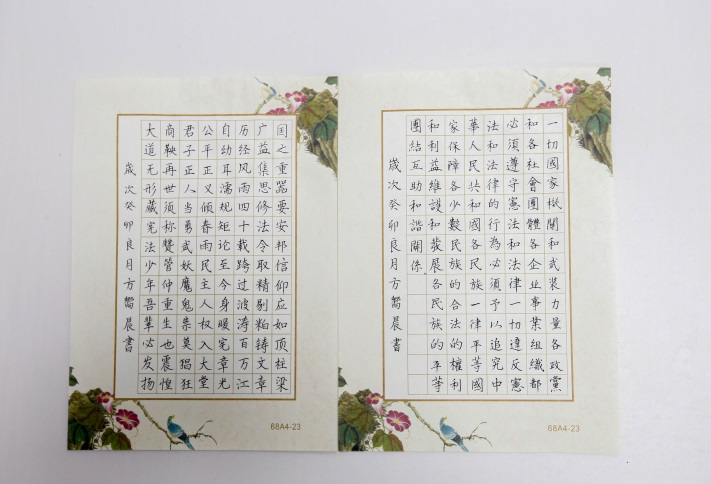 一切國家機關和武裝力量各政黨
和各社會團體各企业事業組織都
必須遵守憲法和法律一切違反憲
法和法律的行為必須予以追究中
華人民共和國各民族一律平等國
家保障各少數民族的合法的權利
和利益維護和發展各民族的平等
團結互助和諧關係
歲次癸卯良月方嚮晨書
68A4-23
国之重器要安邦信仰应如顶柱梁
广益集思修法令取精剔粕铸文章
历经风雨四十载跨过波涛百万江
自幼耳濡规矩论至今身暖宪章光
公平正义倾春雨民主人权入大堂
君子正人当勇武妖魔鬼祟莫猖狂
商鞅再世须称贊管仲重生也震惶
大道无形藏宪法少年吾辈必发扬
歲次癸卯良月方嚮晨書
68A4-23